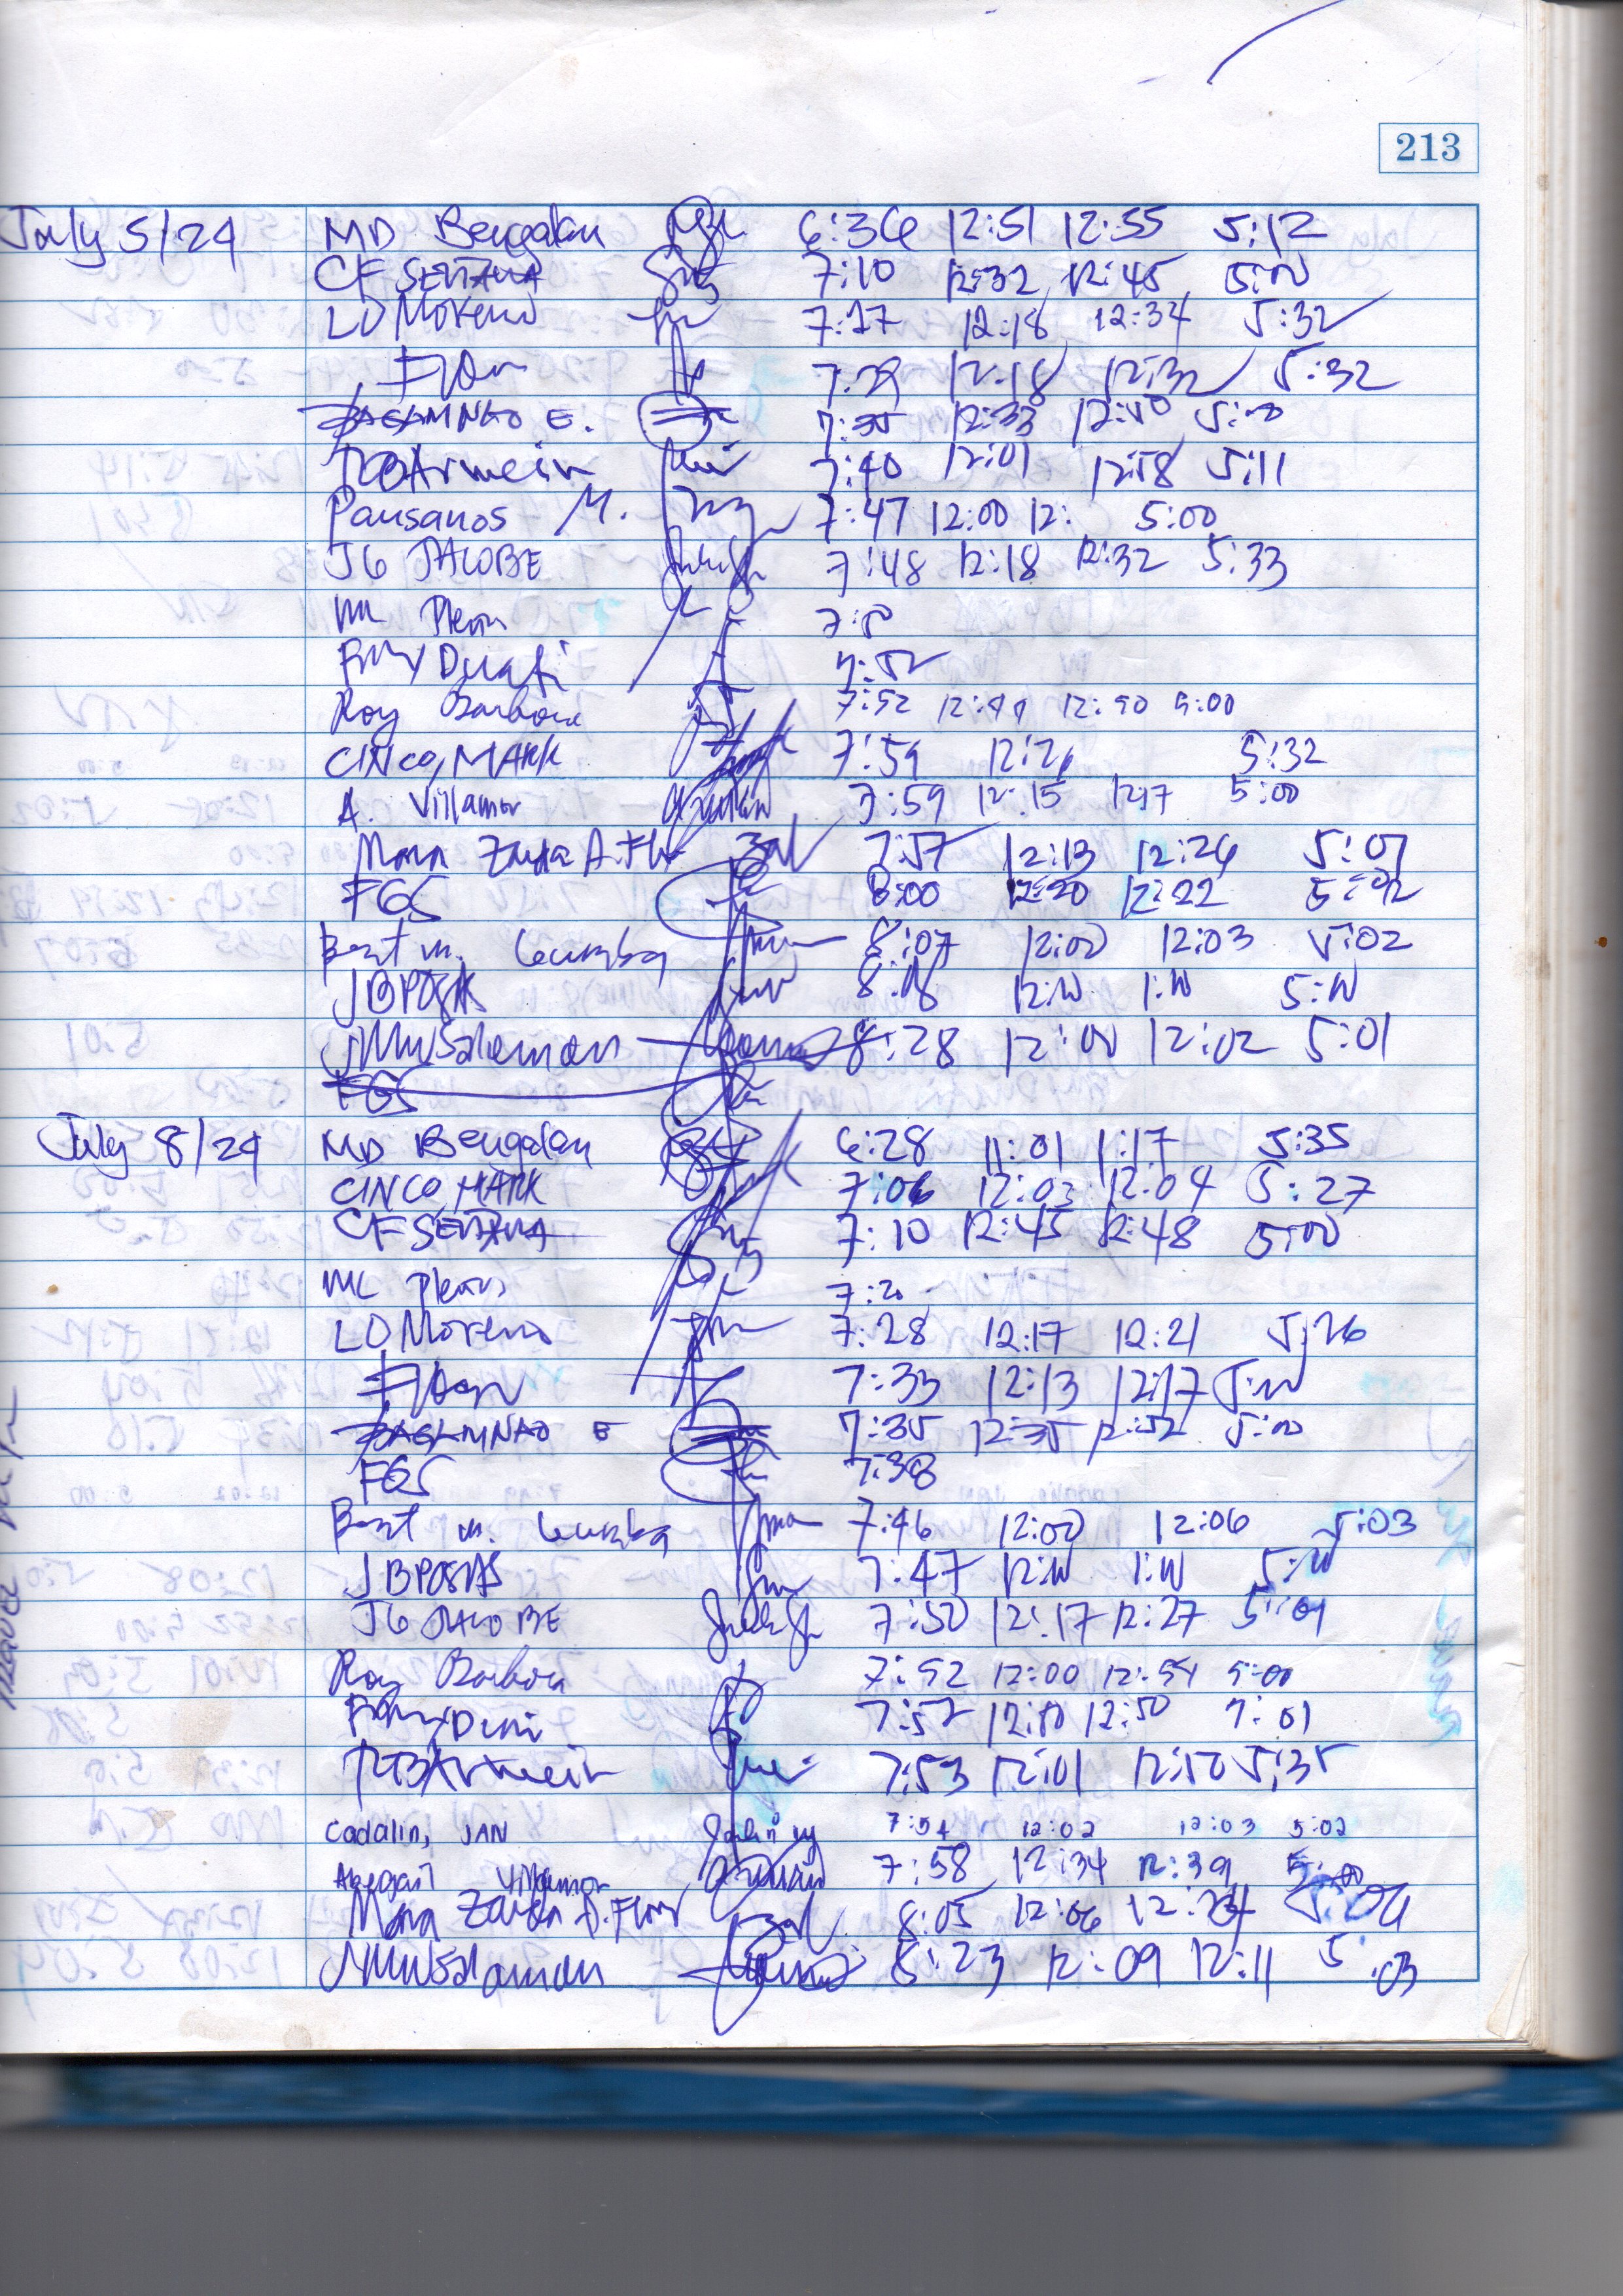 213
July 5/24 MD Bengalan 6:36 12:51 12:55 5:12
CF SEVTANA 7:10 12:32 12:45 5:00
LD Moreno 7:27 12:18 12:34 5:32
7:29 12:18 12:32 5:32
E. 7:35 12:33 12:40 5:00
7:40 12:01 12:58 5:11
Pausanos M. 7:47 12:00 12: 5:00
JG JACOBE 7:48 12:18 12:32 5:33
ML 7:50
7:52
Roy Barbosa 7:52 12:49 12:50 5:00
CINCO, MARK 7:59 12:26 5:32
A. Villamor 7:59 12:15 12:17 5:00
Mona Zayda A. Flor 7:57 12:13 12:26 5:07
FGS 8:00 12:20 12:22 5:02
Bert M. Gumba 8:07 12:00 12:03 5:02
JBPOSAS 8:18 12:00 1:00 5:00
JMWSalaman 8:28 12:00 12:02 5:01
FGS
July 8/24 MD Bengalan 6:28 11:01 1:17 5:35
CINCO, MARK 7:06 12:03 12:04 5:27
CF SEVTANA 7:10 12:45 12:48 5:00
ML 7:20
LD Moreno 7:28 12:17 12:21 5:26
7:33 12:13 12:17 5:00
E 7:35 12:35 12:52 5:00
FGS 7:38
Bert M. Gumba 7:46 12:00 12:06 5:03
JBPOSAS 7:47 12:00 1:00 5:00
JG JACOBE 7:50 12:17 12:27 5:01
Roy Barbosa 7:52 12:00 12:54 5:00
7:52 12:10 12:50 7:01
7:53 12:01 12:50 5:35
Cadalin, JAN 7:54 12:02 12:03 5:02
Abegail Villamor 7:58 12:34 12:39 5:00
Mona Zayda A. Flor 8:05 12:06 12:24
JMWSalaman 8:23 12:09 12:11 5:03